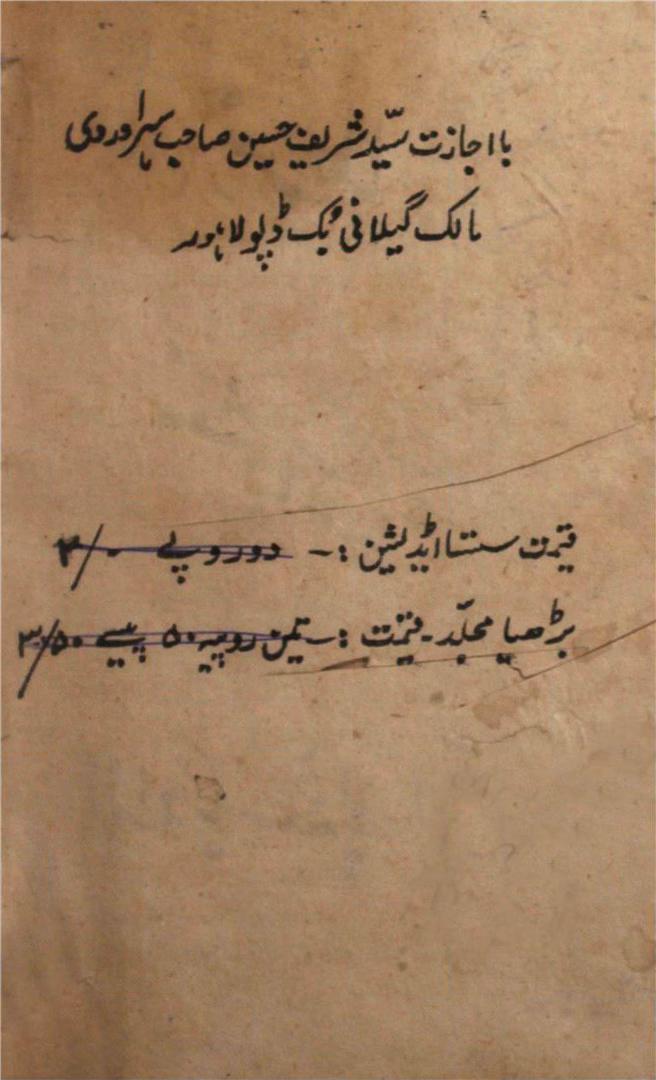 بااجازت سیّد شریف حسین صاحب سہراوردی
مالک گیلانی بُک ڈپو لاہور
قیمت سستا ایڈیشن :- دو روپے ۲/۰
بڑھیا مجلّد - قیمت :- تین روپیہ ۵۰ پیسے ۳/۵۰